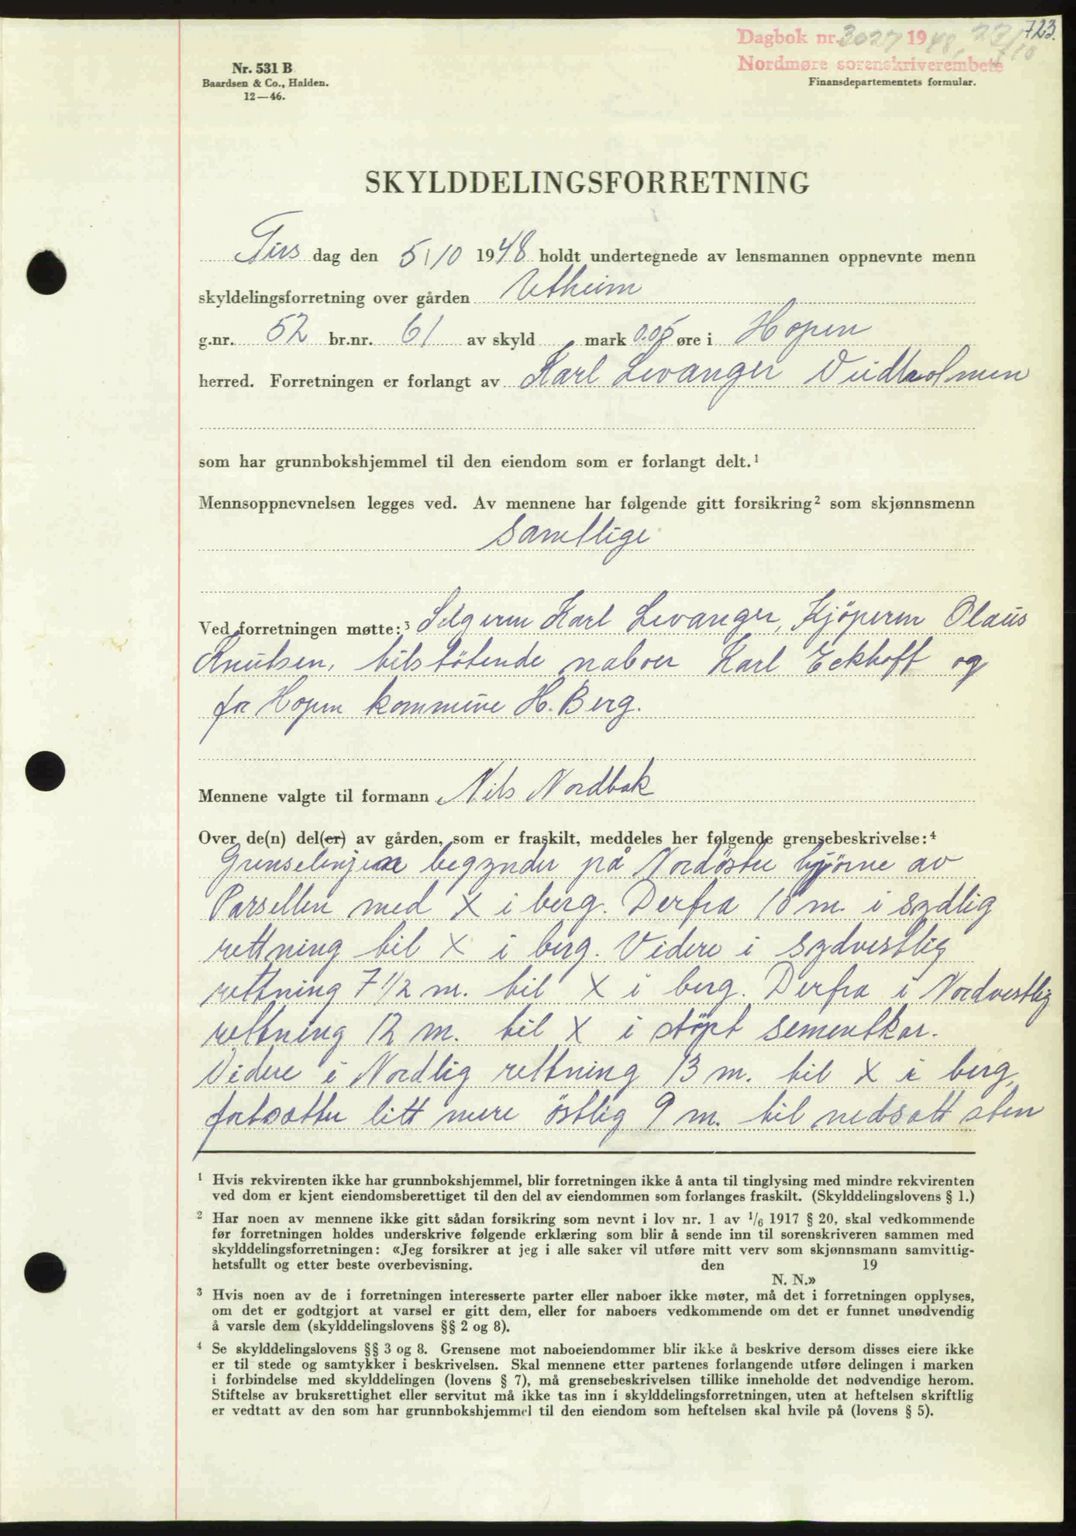 723.
Dagbok nr. 3027 1948, 27/10
Nordmøre sorenskriverembete
Nr. 531 B
Baardsen & Co., Halden.
12—46.
Finansdepartementets formular.
SKYLDDELINGSFORRETNING
Tirs dag den 5/10 1948 holdt undertegnede av lensmannen oppnevnte menn
skyldelingsforretning over gården Utheim
g.nr. 52 br.nr. 61 av skyld mark 0.05 øre i Hopen
herred. Forretningen er forlangt av Karl Levanger Veidholmen
som har grunnbokshjemmel til den eiendom som er forlangt delt.¹
Mennsoppnevnelsen legges ved. Av mennene har følgende gitt forsikring² som skjønnsmenn
samtlige
Ved forretningen møtte:³ Selgeren Karl Levanger, Kjöperen Olaus
Knutsen, tilstötende naboer Karl Eckhoff og
for Hopen kommune H. Berg.
Mennene valgte til formann Nils Nordbak
Over de(n) del(er) av gården, som er fraskilt, meddeles her følgende grensebeskrivelse:⁴
Grenselinjen begynder på Nordöstre hjörne av
Parsellen med X i berg. Derfra 10 m. i sydlig
rettning til X i berg. Videre i sydvestlig
rettning 7 1/2 m. til X i berg. Derfra i Nordvestlig
rettning 12 m. til X i stöpt sementkar.
Videre i Nordlig rettning 13 m. til X i berg,
fortsætter litt mere östlig 9 m. til nedsatt sten
¹ Hvis rekvirenten ikke har grunnbokshjemmel, blir forretningen ikke å anta til tinglysing med mindre rekvirenten
ved dom er kjent eiendomsberettiget til den del av eiendommen som forlanges fraskilt. (Skylddelingslovens § 1.)
² Har noen av mennene ikke gitt sådan forsikring som nevnt i lov nr. 1 av 1/6 1917 § 20, skal vedkommende
før forretningen holdes underskrive følgende erklæring som blir å sende inn til sorenskriveren sammen med
skylddelingsforretningen: «Jeg forsikrer at jeg i alle saker vil utføre mitt verv som skjønnsmann samvittig-
hetsfullt og etter beste overbevisning. den 19
N. N.»
³ Hvis noen av de i forretningen interesserte parter eller naboer ikke møter, må det i forretningen opplyses,
om det er godtgjort at varsel er gitt dem, eller for naboers vedkommende om det er funnet unødvendig
å varsle dem (skylddelingslovens §§ 2 og 8).
⁴ Se skylddelingslovens §§ 3 og 8. Grensene mot naboeiendommer blir ikke å beskrive dersom disses eiere ikke
er til stede og samtykker i beskrivelsen. Skal mennene etter partenes forlangende utføre delingen i marken
i forbindelse med skylddelingen (lovens § 7), må grensebeskrivelsen tillike inneholde det nødvendige herom.
Stiftelse av bruksrettighet eller servitut må ikke tas inn i skylddelingsforretningen, uten at heftelsen skriftlig
er vedtatt av den som har grunnbokshjemmel til den eiendom som heftelsen skal hvile på (lovens § 5).